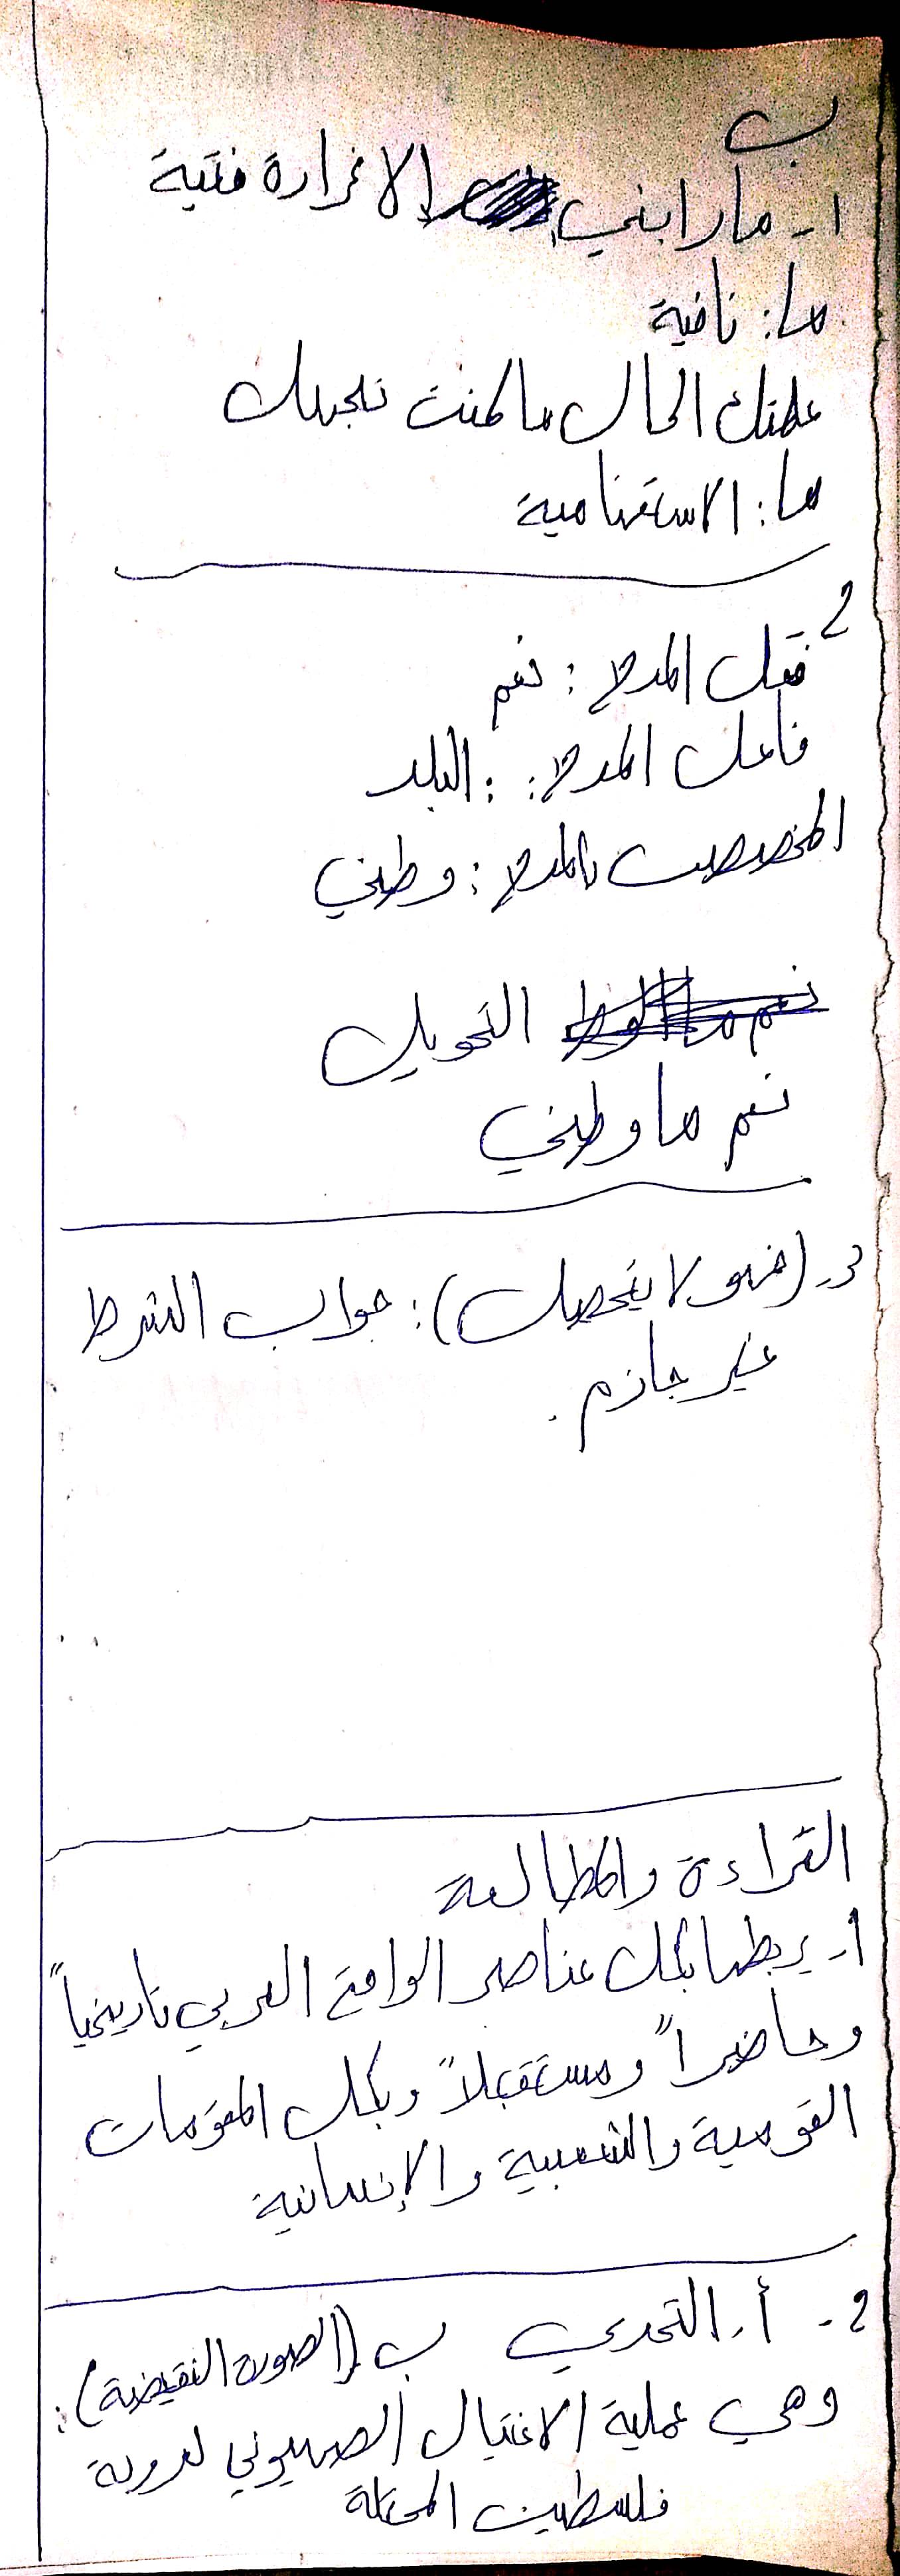 ب
١- ما رابني إلا غرارة فتية
ما: نافية
علمتك الحال ما كنت تجهل
ما: الاستفهامية
2
فعل المدح: نعم
فاعل المدح: البلد
المخصوص بالمدح: وطني
التحويل
نعم ما وطني
3- (فهو لا يتحصل): جواب الشرط
غير جازم.
القراءة والمطالعة
1- يربطها بكل عناصر الواقع العربي تاريخياً
وحاضراً ومستقبلاً وبكل المقومات
القومية والشعبية والإنسانية
2- أ. التحدي ب. (الصورة النقيضة):
وهي عملية الاغتيال الصهيوني لعروبة
فلسطين المحتلة